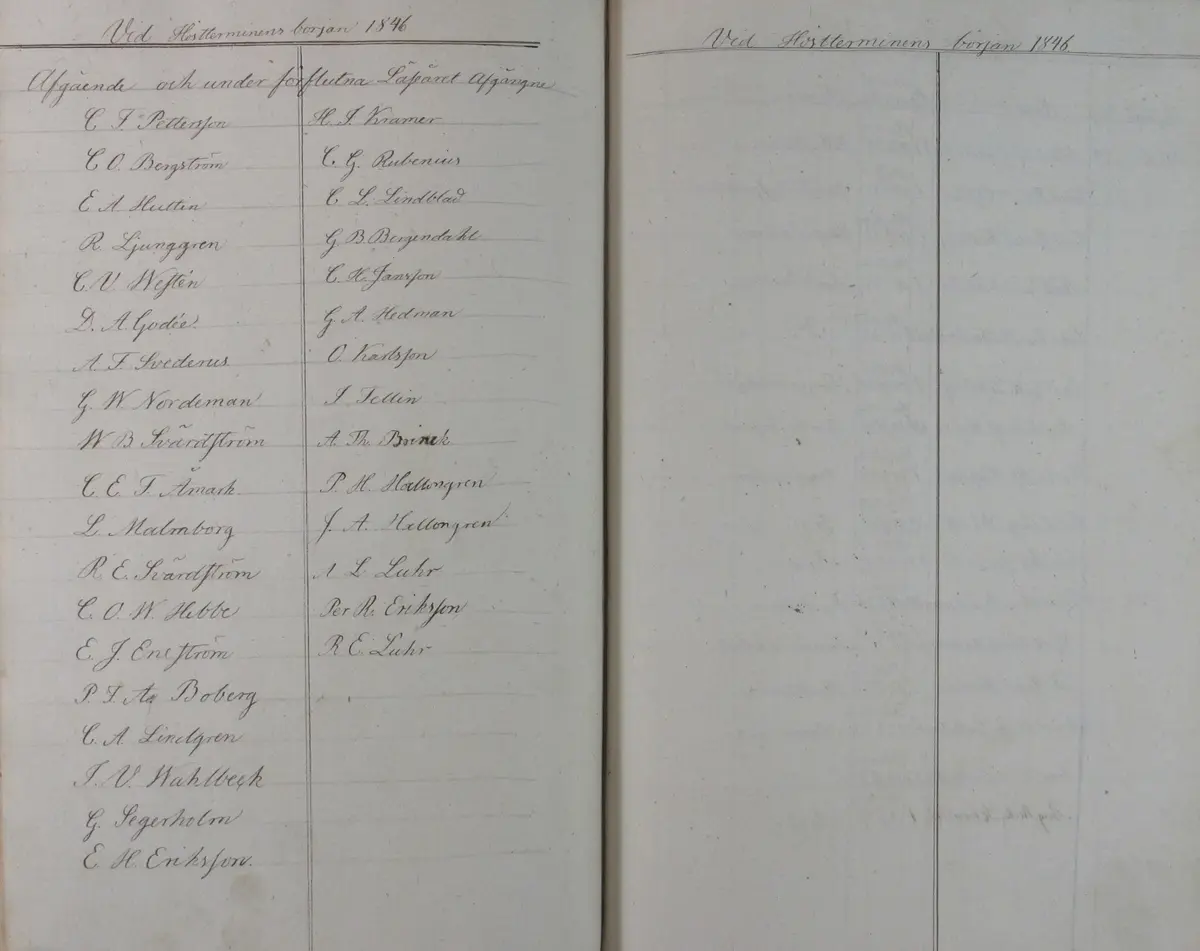 Vid Höstterminens början 1846
Afgående och under förflutna Läsåret Afgångne
C. F. Pettersson
C O. Bergström
E A Hultin
R. Ljunggren
C. V. Westén
D. A Godée
A F. Svederus
G. W Nordeman
W B Svärdström
C. E. T. Åmark
L. Malmborg
R. E. Svärdström
C. O. W. Hebbe
E. J. Eneström
P. F. Boberg
C. A. Lindgren
J. V. Wahlbeck
G. Segerholm
E. H. Eriksson.
H. J. Kramer
C. G. Rubenius
C L. Lindblad
G B. Bergendahl
C. H. Jansson
G A. Hedman
O. Karlsson
J Tellin
A. Th. Brinck
P. H. Hallongren
J. A. Hallongren
A L Luhr
Per R. Eriksson
R E. Luhr
Vid Höstterminens början 1846